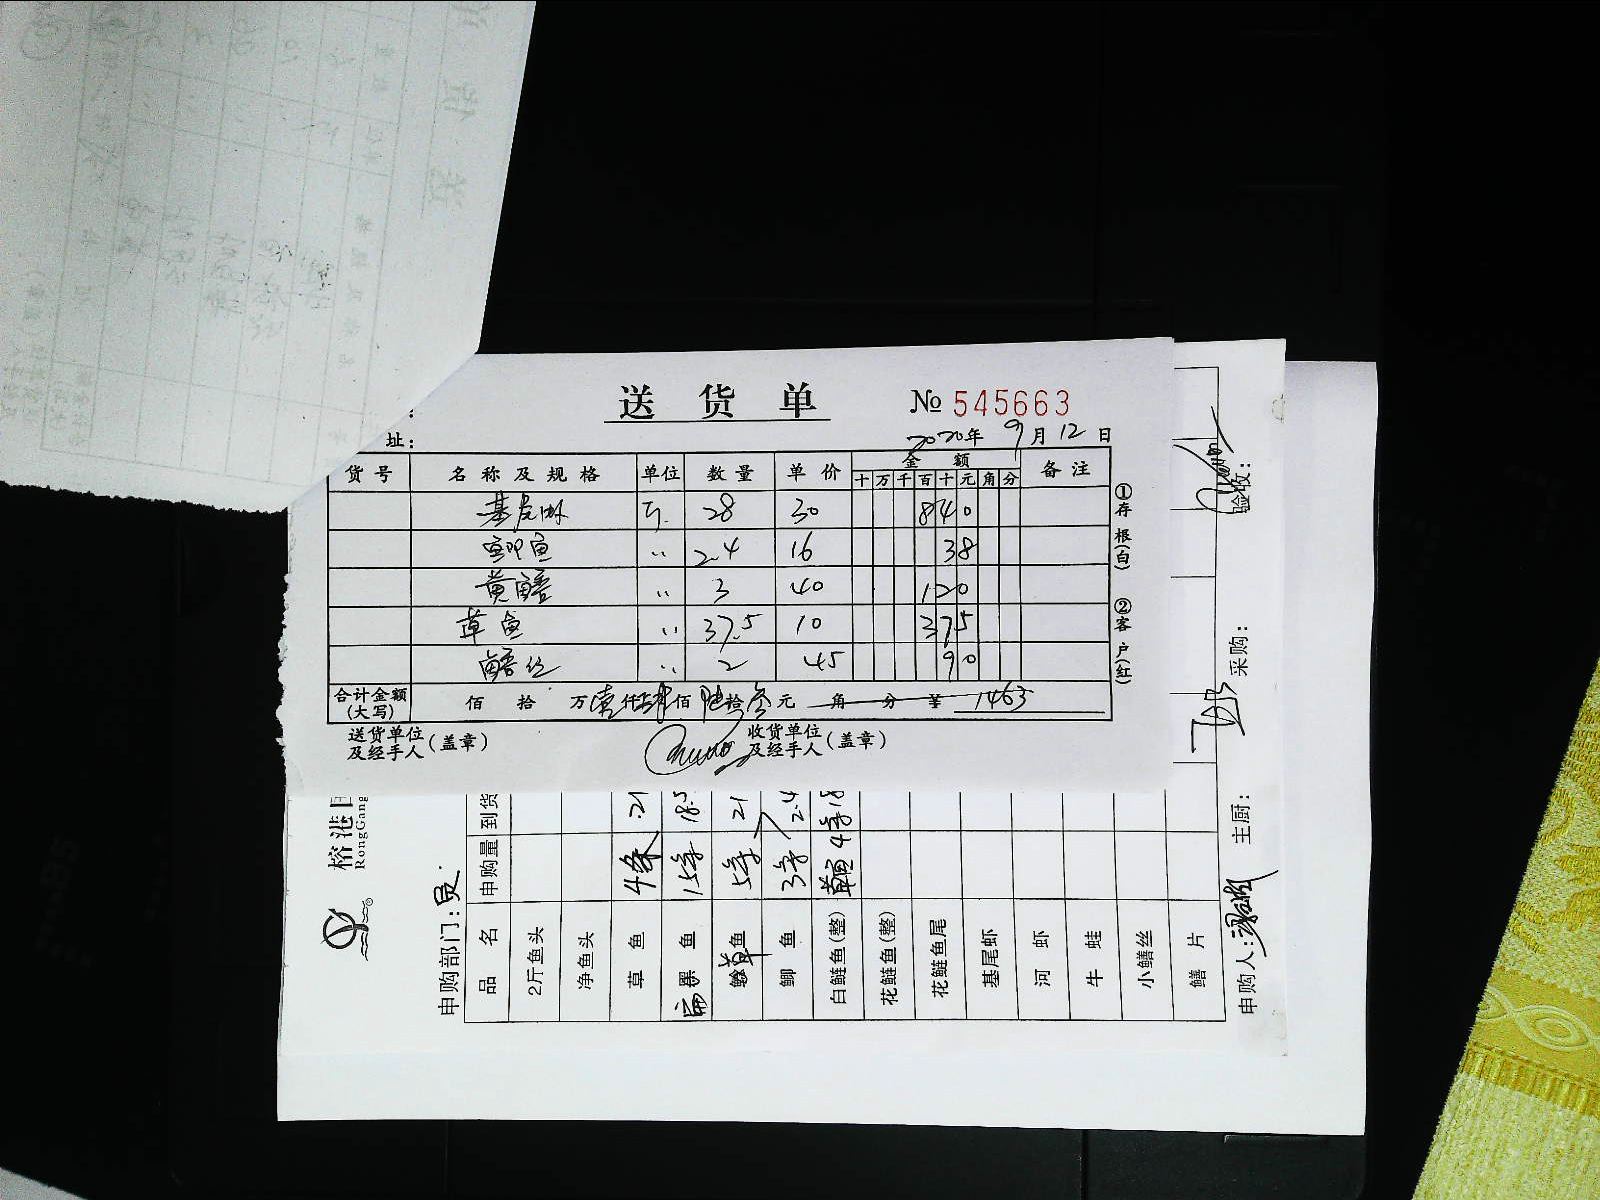 送货单
№ 545663
址：
2020年9月12日
货号 名称及规格 单位 数量 单价 金额 备注
十 万 千 百 十 元 角 分
基尾虾 斤 28 30 840
鲫鱼 〃 2.4 16 38
黄鳝 〃 3 40 120
草鱼 〃 37.5 10 375
鳝丝 〃 2 45 90
合计金额(大写) 佰 拾 万壹仟肆佰陆拾叁元 角 分 ¥ 1463
送货单位及经手人(盖章) 收货单位及经手人(盖章)
①存根(白) ②客户(红)
榕港
RongGang
申购部门：
品名 申购量 到货
2斤鱼头
净鱼头
草鱼 4条 21
鱼 15斤 18.5
鱼 5斤 21
鲫鱼 3斤 2.4
白鲢鱼(整) 草鱼 4斤 18
花鲢鱼(整)
花鲢鱼尾
基尾虾
河虾
牛蛙
小鳝丝
鳝片
申购人： 主厨： 采购： 验收：